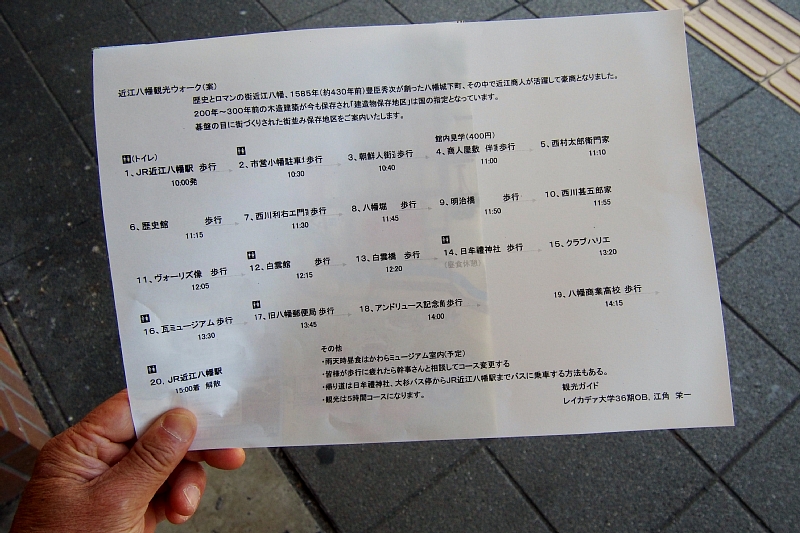 近江八幡観光ウォーク(案)
歴史とロマンの街近江八幡、1585年(約430年前)豊臣秀次が創った八幡城下町、その中で近江商人が活躍して豪商となりました。
200年～300年前の木造建築が今も保存され「建造物保存地区」は国の指定となっています。
碁盤の目に街づくりされた街並み保存地区をご案内いたします。
(トイレ) 館内見学(400円)
1、JR近江八幡駅 歩行 2、市営小幡駐車 歩行 3、朝鮮人街 歩行 4、商人屋敷 伴 歩行 5、西村太郎衛門家
10:00発 10:30 10:40 11:00 11:10
6、歴史館 歩行 7、西川利右エ門 歩行 8、八幡堀 歩行 9、明治橋 歩行 10、西川甚五郎家
11:15 11:30 11:45 11:50 11:55
11、ヴォーリズ像 歩行 12、白雲館 歩行 13、白雲橋 歩行 14、日牟禮神社 歩行 15、クラブハリエ
12:05 12:15 12:20 13:20
16、瓦ミュージアム 歩行 17、旧八幡郵便局 歩行 18、アンドリュース記念 歩行 19、八幡商業高校 歩行
13:30 13:45 14:00 14:15
20、JR近江八幡駅
15:00着 解散
その他
・雨天時昼食はかわらミュージアム室内(予定)
・皆様が歩行に疲れたら幹事さんと相談してコース変更する
・帰り道は日牟禮神社、大杉バス停からJR近江八幡駅までバスに乗車する方法もある。
・観光は5時間コースになります。
観光ガイド
レイカディア大学36期OB, 江角 栄一